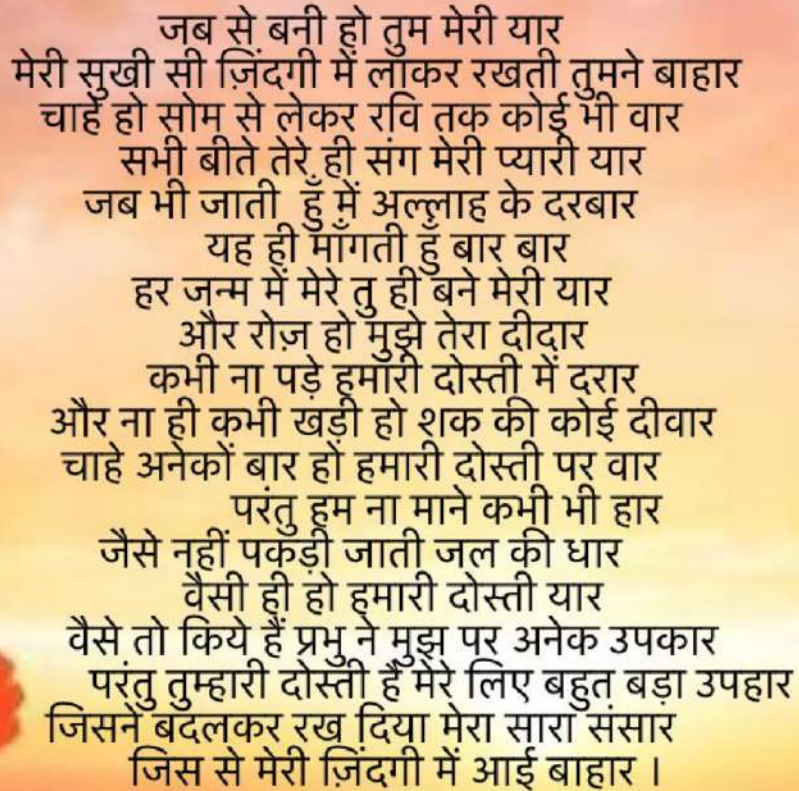 जब से बनी हो तुम मेरी यार
मेरी सुखी सी ज़िंदगी में लाकर रखती तुमने बाहार
चाहे हो सोम से लेकर रवि तक कोई भी वार
सभी बीते तेरे ही संग मेरी प्यारी यार
जब भी जाती हुँ में अल्लाह के दरबार
यह ही माँगती हुँ बार बार
हर जन्म में मेरे तु ही बने मेरी यार
और रोज़ हो मुझे तेरा दीदार
कभी ना पड़े हमारी दोस्ती में दरार
और ना ही कभी खड़ी हो शक की कोई दीवार
चाहे अनेकों बार हो हमारी दोस्ती पर वार
परंतु हम ना माने कभी भी हार
जैसे नहीं पकड़ी जाती जल की धार
वैसी ही हो हमारी दोस्ती यार
वैसे तो किये हैं प्रभु ने मुझ पर अनेक उपकार
परंतु तुम्हारी दोस्ती हैं मेरे लिए बहुत बड़ा उपहार
जिसने बदलकर रख दिया मेरा सारा संसार
जिस से मेरी ज़िंदगी में आई बाहार ।